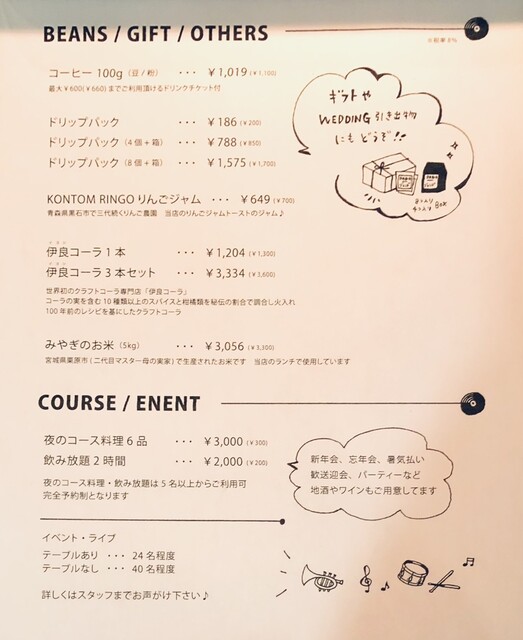 BEANS / GIFT / OTHERS
※軽率 8%
コーヒー 100g（豆 / 粉） ･･･ ￥1,019（￥1,100）
最大￥600(￥660)までご利用頂けるドリンクチケット付
ドリップパック ･･･ ￥186（￥200）
ドリップパック（4個＋箱） ･･･ ￥788（￥850）
ドリップパック（8個＋箱） ･･･ ￥1,575（￥1,700）
ギフトや
WEDDING 引き出物
にもどうぞ!!
8コ入り
4コ入り BOX
KONTOM RINGO りんごジャム ･･･ ￥649（￥700）
青森県黒石市で三代続くりんご農園　当店のりんごジャムトーストのジャム♪
伊良コーラ 1 本 ･･･ ￥1,204（￥1,300）
伊良コーラ 3 本セット ･･･ ￥3,334（￥3,600）
世界初のクラフトコーラ専門店「伊良コーラ」
コーラの実を含む 10 種類以上のスパイスと柑橘類を秘伝の割合で調合し火入れ
100 年前のレシピを基にしたクラフトコーラ
みやぎのお米（5kg） ･･･ ￥3,056（￥3,300）
宮城県栗原市（二代目マスター母の実家）で生産されたお米です　当店のランチで使用しています
COURSE / ENENT
夜のコース料理 6 品 ･･･ ￥3,000（￥300）
飲み放題 2 時間 ･･･ ￥2,000（￥200）
夜のコース料理・飲み放題は 5 名以上からご利用可
完全予約制となります
新年会、忘年会、暑気払い
歓送迎会、パーティーなど
地酒やワインもご用意してます
イベント・ライブ
テーブルあり ･･･ 24 名程度
テーブルなし ･･･ 40 名程度
詳しくはスタッフまでお声がけ下さい♪